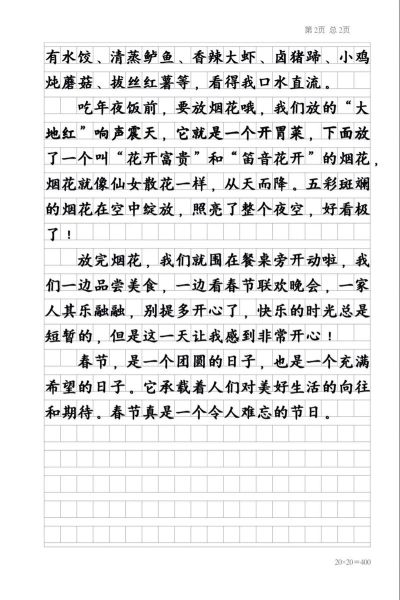 第2页 总2页
有水饺、清蒸鲈鱼、香辣大虾、卤猪蹄、小鸡
炖蘑菇、拔丝红薯等，看得我口水直流。
吃年夜饭前，要放烟花哦，我们放的“大
地红”响声震天，它就是一个开胃菜，下面放
了一个叫“花开富贵”和“笛音花开”的烟花，
烟花就像仙女散花一样，从天而降。五彩斑斓
的烟花在空中绽放，照亮了整个夜空，好看极
了！
放完烟花，我们就围在餐桌旁开动啦，我
们一边品尝美食，一边看春节联欢晚会，一家
人其乐融融，别提多开心了，快乐的时光总是
短暂的，但是这一天让我感到非常开心！
春节，是一个团圆的日子，也是一个充满
希望的日子。它承载着人们对美好生活的向往
和期待。春节真是一个令人难忘的节日。
20×20=400